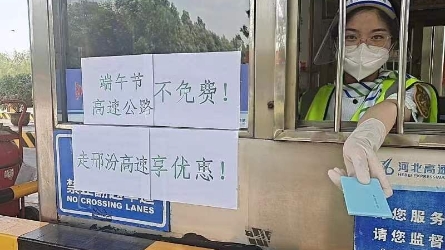 端午节
高速公路不免费！
走邢汾高速享优惠！
禁
NO CROSSING LANES
河北高速
您服务
请您监督